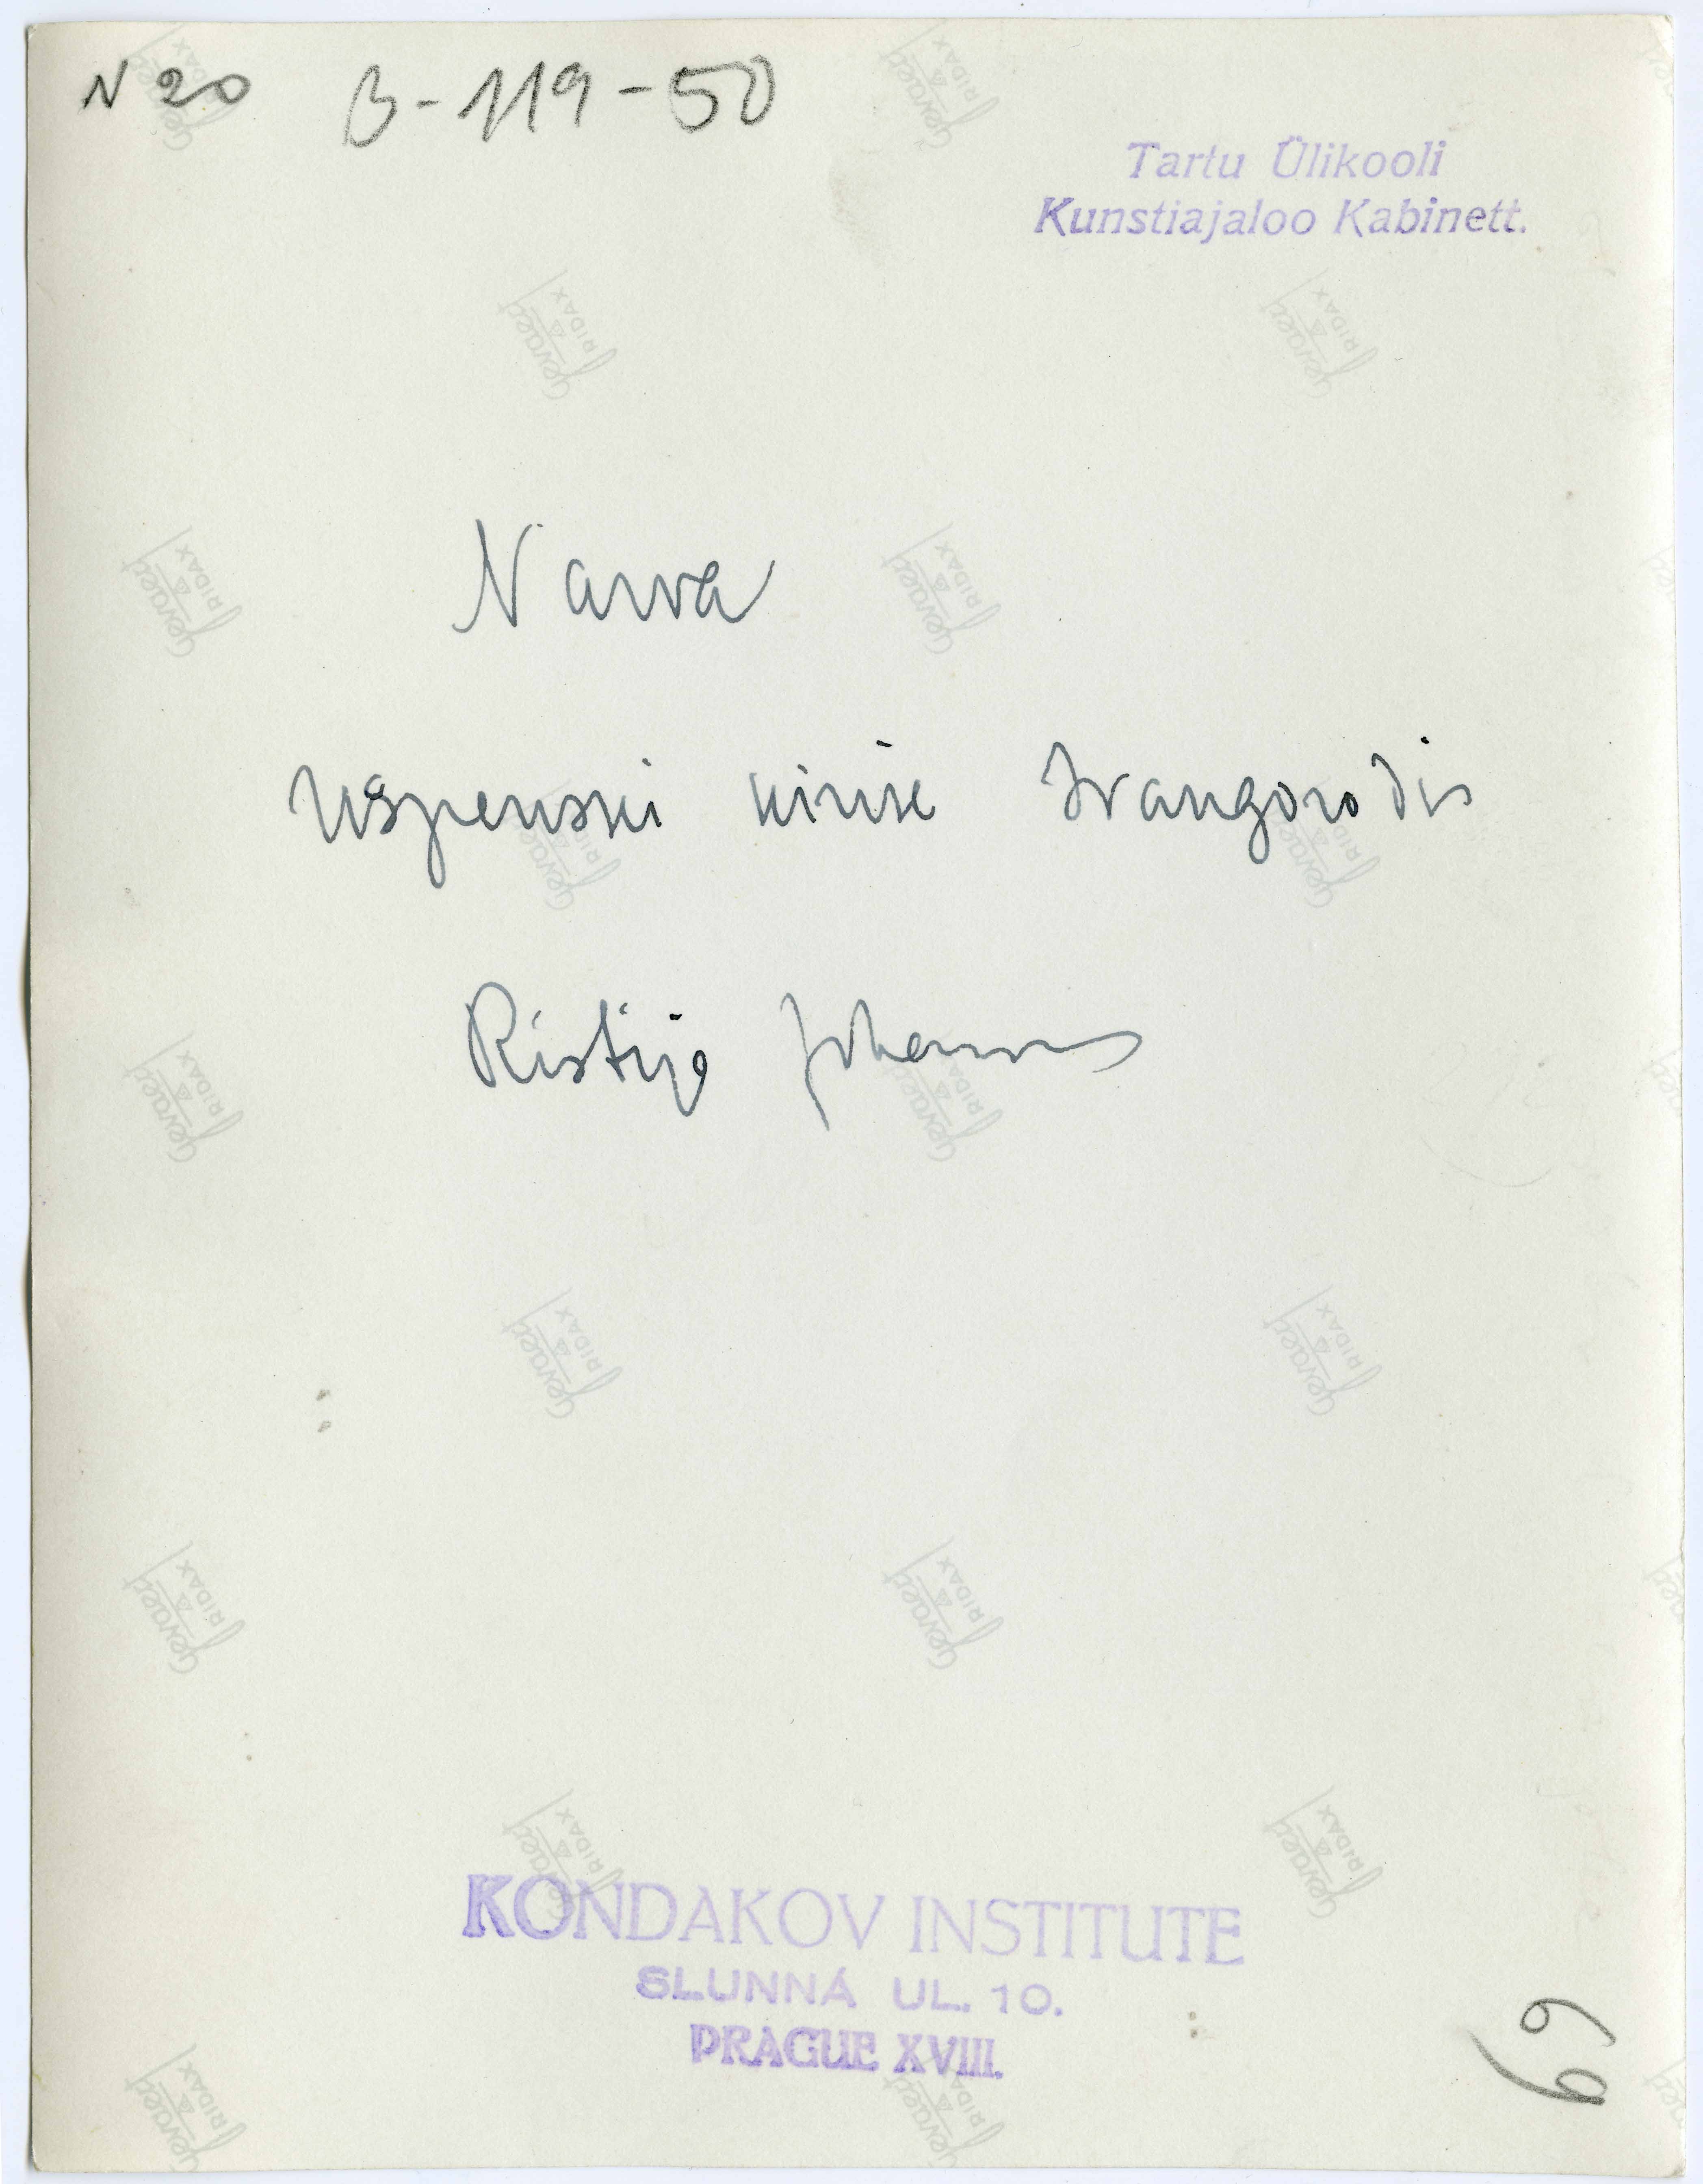 N 20 B-119-50
Tartu Ülikooli
Kunstiajaloo Kabinett.
Narva
Uspenski kirik Ivangorodis
Ristija Johannes
KONDAKOV INSTITUTE
SLUNNÁ UL. 10.
PRAGUE XVIII.
69
Gevaert
RIDAX